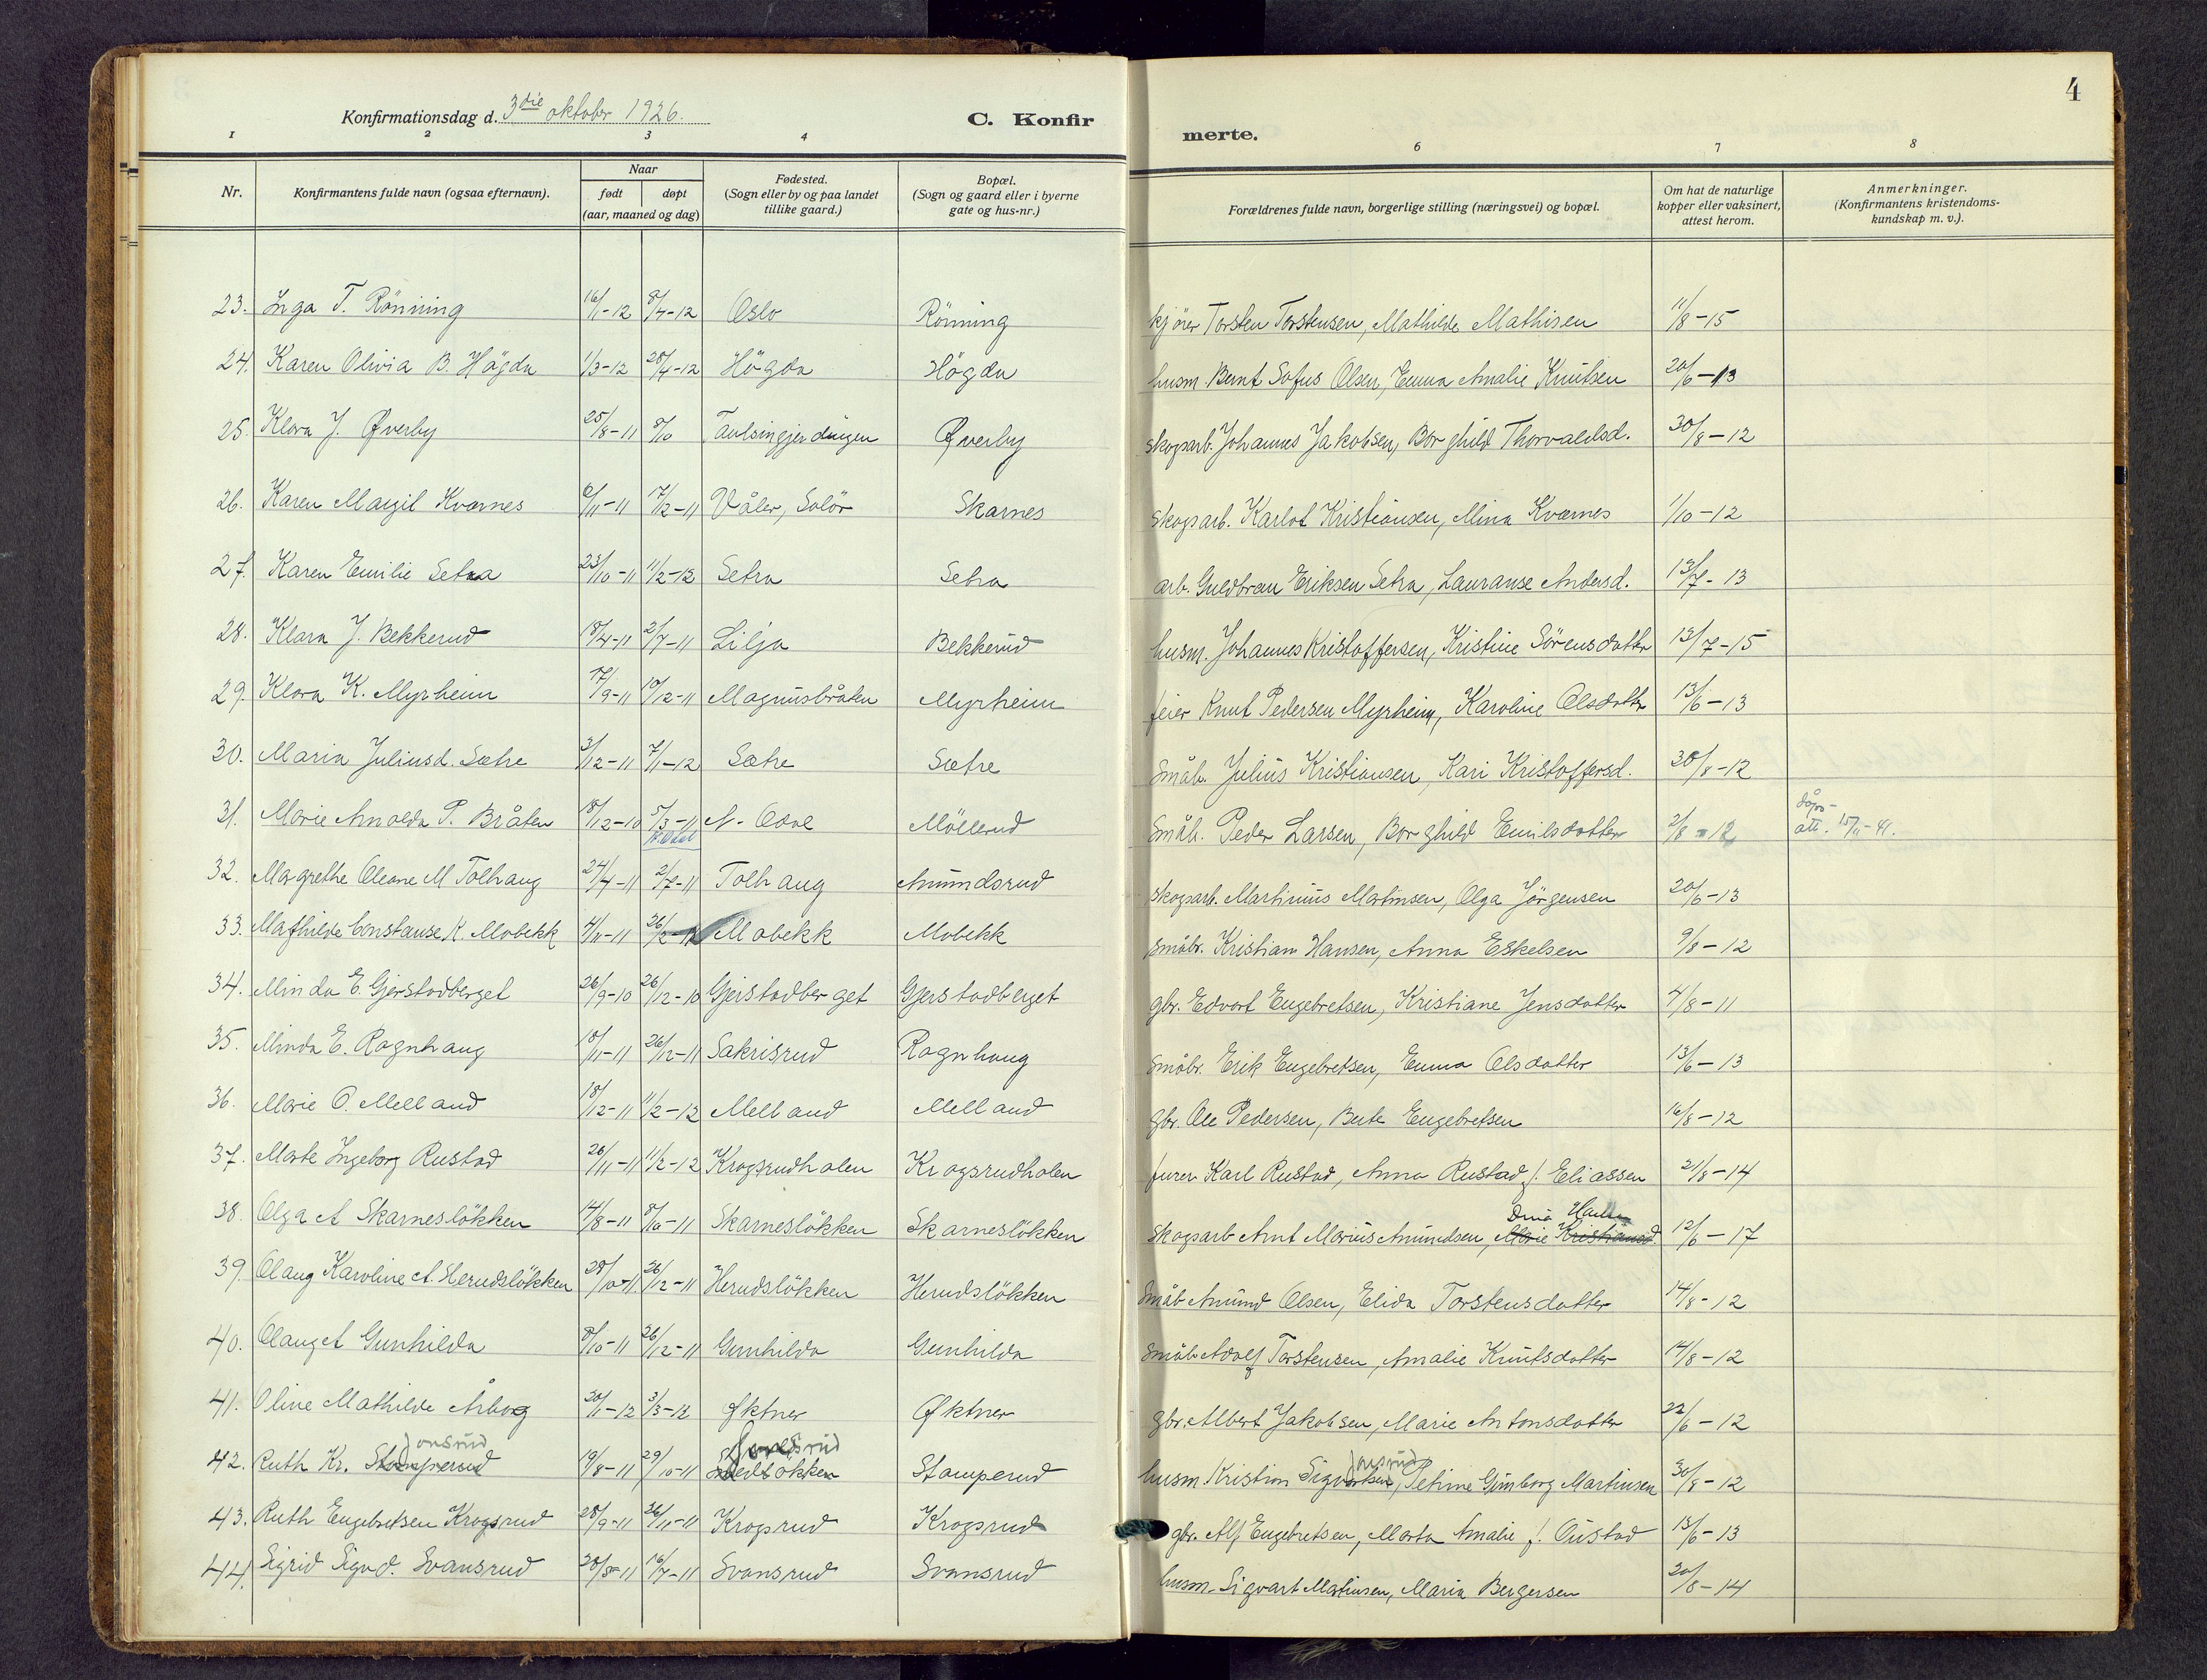 4
Konfirmationsdag d. 3die oktober 1926.
C. Konfirmerte.
1 2 3 4 6 7 8
Nr.
Konfirmantens fulde navn (ogsaa efternavn).
Naar
født døpt
(aar, maaned og dag)
Fødested.
(Sogn eller by og paa landet
tillike gaard.)
Bopæl.
(Sogn og gaard eller i byerne
gate og hus-nr.)
Forældrenes fulde navn, borgerlige stilling (næringsvei) og bopæl.
Om hat de naturlige
kopper eller vaksinert,
attest herom.
Anmerkninger.
(Konfirmantens kristendoms-
kundskap m. v.).
23. Inga T. Rönning 16/1-12 8/4-12 Oslo Rönning kjörer Torsten Torstensen, Mathilde Mathisen 11/8-15
24. Karen Olivia B. Högda 1/3-12 28/4-12 Högda Högda husm. Bernt Sofus Olsen, Emma Amalie Knutsen 20/6-13
25. Klara J. Øverby 25/8-11 8/10 Taulsingjerdingen Øverby skogsarb. Johannes Jakobsen, Borghild Thorvaldsd. 30/8-12
26. Karen Margit Kværnes 6/11-11 17/12-11 Våler, Solör Skarnes skogsarb. Karlot Kristiansen, Mina Kværnes 1/10-12
27. Karen Emilie Setra 23/10-11 11/2-12 Setra Setra arb. Guldbran Eriksen Setra, Lauranse Andersd. 13/7-13
28. Klara J. Bekkerud 18/4-11 2/7-11 Lilja Bekkerud husm. Johannes Kristoffersen, Kristine Sörensdotter 13/7-15
29. Klara K. Myrheim 17/9-11 10/12-11 Magnusbråten Myrheim feier Knut Pedersen Myrheim, Karoline Olsdotter 13/6-13
30. Maria Juliusd. Sætre 3/12-11 7/1-12 Sætre Sætre Småb. Julius Kristiansen, Kari Kristoffersd. 30/8-12
31. Marie Arnolda P. Bråten 18/12-10 5/3-11 N. Odal Möllerud Småb. Peder Larsen, Borghild Emilsdotter 2/8-12 dåps-
att. 15/11-41.
32. Margrethe Oleane M Tolhaug 24/4-11 2/7-11 Tolhaug Amundsrud skogsarb. Martinius Martinsen, Olga Jörgensen 20/6-13
33. Mathilde Constanse K. Mobekk 4/11-11 26/12-11 Mobekk Mobekk småbr. Kristian Hansen, Anna Eskelsen 9/8-12
34. Minda E. Gjerstadberget 26/9-10 26/12-10 Gjerstadberget Gjerstadberget gbr. Edvart Engebretsen, Kristiane Jensdotter 4/8-11
35. Minda E. Ragnhaug 18/11-11 26/12-11 Sakrisrud Ragnhaug Småbr. Erik Engebretsen, Emma Olsdotter 13/6-13
36. Marie O. Melland 18/12-11 11/2-12 Melland Melland gbr. Ole Pedersen, Berte Engebretsen 16/8-12
37. Marte Ingeborg Rustad 26/11-11 11/2-12 Krogsrudholen Krogsrudholen furer Karl Rustad, Anna Rustad f. Eliassen 21/8-14
38. Olga A Skarneslökken 14/8-11 8/10-11 Skarneslökken Skarneslökken Skogsarb Arnt Marius Amundsen, Marie Kristiansd. 12/6-17
39. Olaug Karoline A. Herudslökken 28/10-11 26/12-11 Herudslökken Herudslökken Småb Amund Olsen, Elida Torstensdotter 14/8-12
40. Olaug A Gunhilda 8/10-11 26/12-11 Gunhilda Gunhilda Småb Adolf Torstensen, Amalie Knutsdotter 14/8-12
41. Oline Mathilde Årborg 20/1-12 3/3-12 Øktner Øktner gbr. Albert Jakobsen, Marie Antonsdotter 22/6-12
Jonsrud
42. Ruth Kr. Stamperud 19/8-11 29/10-11 Stamperud husm. Kristian Sigvartsen, Petrine Gunborg Martinsen 30/8-12
43. Ruth Engebretsen Krogsrud 28/9-11 26/11-11 Krogsrud Krogsrud gbr. Alf Engebretsen, Marta Amalie f. Austad 13/6-13
44. Sigrid Sigvd. Svansrud 28/3-11 16/7-11 Svansrud Svansrud husm. Sigvart Martinsen, Maria Bergersen 20/8-14